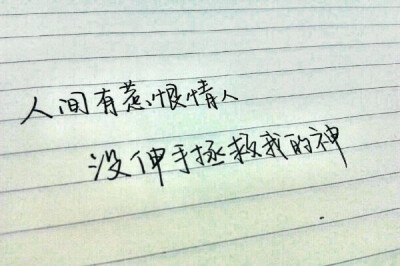 人间有惹恨情人
没伸手拯救我的神